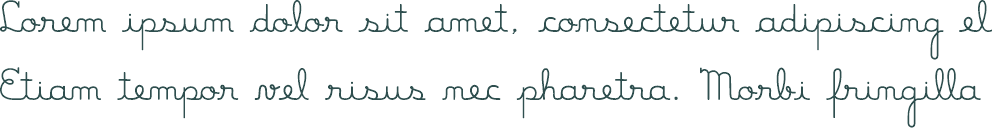 Lorem ipsum dolor sit amet, consectetur adipiscing el
Etiam tempor vel risus nec pharetra. Morbi fringilla